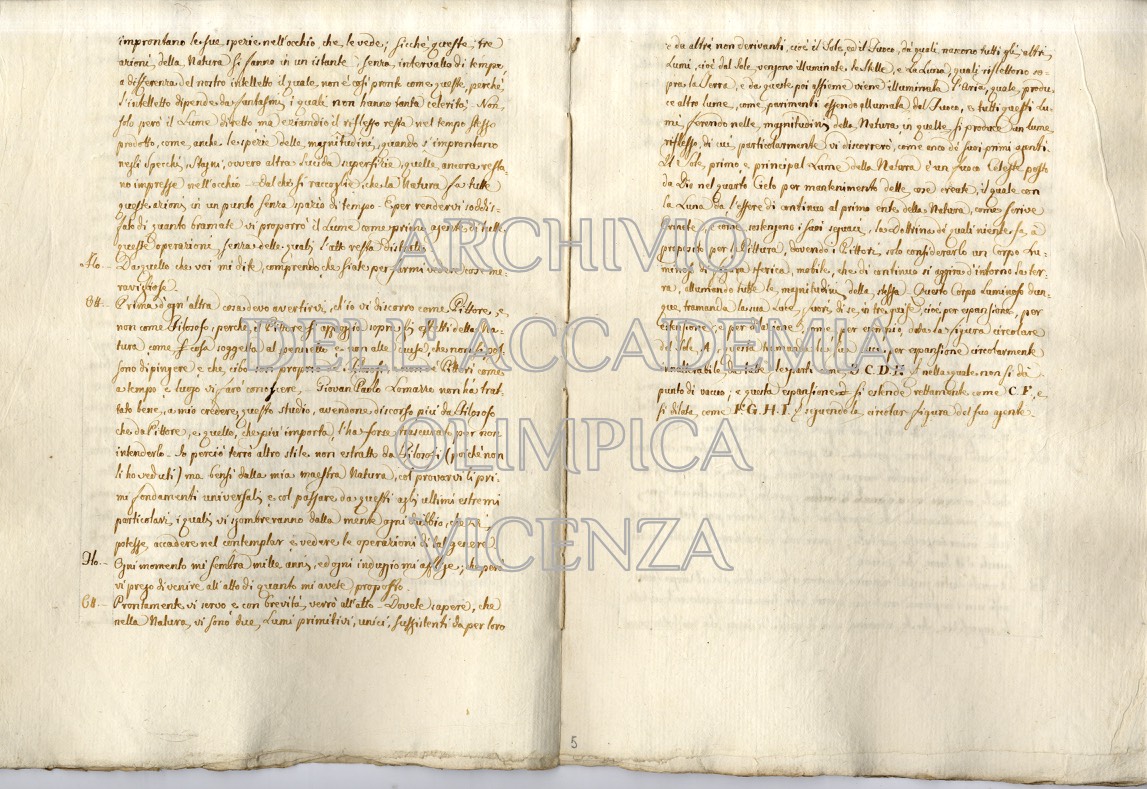 improntano le sue spezie nell'occhio, che le vede; sicchè queste tre
azioni della Natura si fanno in un istante senza intervallo di tempo,
a differenza del nostro intelletto il quale non è così pronto come queste, perchè
l'intelletto dipende da fantasmi, i quali non hanno tanta celerità; Non
solo però il Lume diretto ma eziandio il riflesso resta nel tempo stesso
prodotto, come anche le spezie delle magnitudini, quando s'improntano
negli Specchi, Stagni, ovvero altra lucida superfizie, quelle ancora resta-
no impresse nell'occhio. Dal che si raccoglie, che la Natura fa tutte
queste azioni in un punto senza spazio di tempo. E per rendervi soddis-
fato di quanto bramate vi proporrò il Lume come primo agente di tutte
queste operazione, senza delle quali l'atto resta
Da quello che voi mi dite, comprendo che siate per farmi vedere cose me-
ravigliose.
Prima d'ogn'altra cosa devo avertirvi, ch'io vi discorro come Pittore, e
non come Filosofo, perchè il Pittore s'appoggia sopra gli effetti della Na-
tura come cosa soggetta al pennello; e non alle cause, che non si pos-
sono dipingere e che, cibo sono proprio de Filosofi, e non de Pittori come
a tempo e luogo vi farò conoscere. Giovan Paolo Lomazzo non ha trat-
tato bene, a mio credere questo studio, avendone discorso più da Filosofo
che da Pittore, e quello, che più importa, l'ha forse trascurato per non
intenderlo. Io perciò terrò altro stile non estratto da Filosofi (poichè non
li ho veduti) ma bensì dalla mia maestra Natura, col provarvi li pri-
mi fondamenti universali, e col passare da questi agli ultimi estremi
particolari, i quali vi sgombreranno dalla mente ogni dubbio, che vi
potesse accadere nel contemplar e vedere le operazioni di tal genere.
Ogni momento mi sembra mille anni, ed ogni induggio mi afflige; che però
vi prego di venire all'atto di quanto mi avete proposto.
Prontamente vi servo e con brevità verrò all'atto. Dovete sapere, che
nella Natura vi sono due Lumi primitivi, unici, sussistenti da per loro
e da altri non derivanti, cioè il Sole, ed il Fuoco, da quali nascono tutti gli altri
Lumi, cioè dal Sole vengono illuminate le Stelle, e la Luna, quali riflettono so-
pra la Terra, e da queste poi assieme viene illuminata l'Aria, quale, produ-
ce altro lume, come parimenti essendo illuminata dal Fuoco, e tutti questi Lu-
mi ferendo nelle magnitudini della Natura in quelle si produce un lume
riflesso, di cui particolarmente vi discorrerò, come anco de suoi primi agenti.
Il Sole, primo, e principal Lume della Natura è un fuoco Celeste posto
da Dio nel quarto Cielo per mantenimento delle cose create, il quale con
la Luna dà l'essere di continuo al primo ente della Natura, come scrive
e come sostengono i suoi seguaci, la Dottrina di quali niente fa a
proposito per la Pittura, dovendo i Pittori solo considerarlo un Corpo Lu-
minoso di figura sferica, mobile, che di continuo si aggira d'intorno la ter-
ra, allumando tutte le magnitudini della stessa. Questo Corpo Luminoso dun-
que, tramanda la sua luce, fuori di se, in tre guise, cioè, per espansione, per
estensione, e per dilazione, come per esempio, data la figura circolare
del Sole, A, questa tramanda la sua luce, per espansione circolarmente
inalterabile da tutte le parti come B C. D. E. nella quale non si dà
punto di vacuo, e questa espansione si estende rettamente come C. F., e
si dilata, come F. G. H. I. seguendo la circolar figura del suo agente.
5
ARCHIVIO
DELL'ACCADEMIA
OLIMPICA
VICENZA